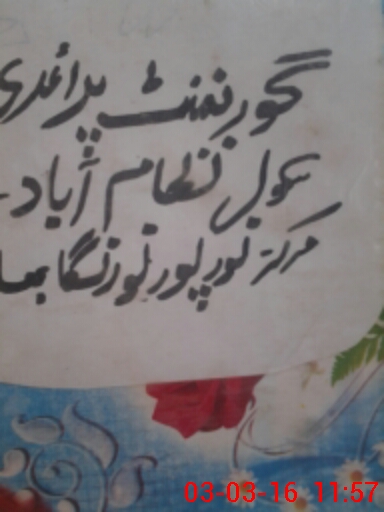 گورنمنٹ پرائمری
سکول نظام آباد۔
مرکز نور پور نورنگا بھا
03-03-16 11:57